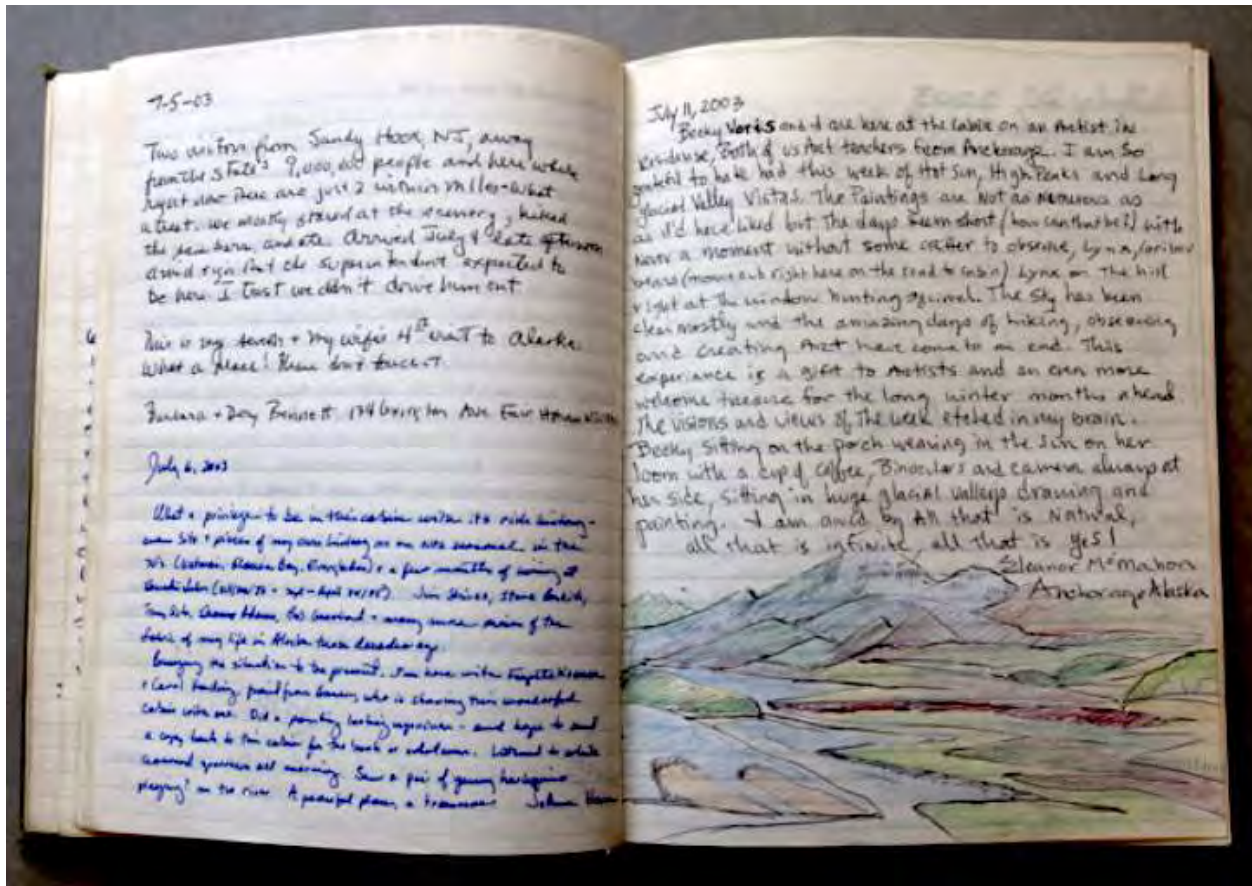 7-5-03
Two visitors from Sandy Hook, NJ, away
from the state's 9,000,000 people and here where
right now there are just 2 within miles - What
a treat. We mostly stared at the scenery, hiked
the and ate. Arrived July 4 late afternoon
amid sign that the superintendent expected to
be here. I trust we didn't drive him out.
This is my seventh + my wife's 4th visit to Alaska.
What a place! Then don't
Barbara + Bennett Ave Fair Haven
July 6, 2003
What a privilege to be in this cabin with its rich history -
some of my own history as an seasonal in the
70's (Katmai, Glacier Bay, ) + a few months of at
many more of the
fabric of my life in Alaska these decades ago.
Bringing the situation to the present, I'm here with
+ Carol who is sharing this wonderful
cabin with me. Did a painting looking - and hope to send
a copy back to this cabin for the book or Listened to white
crowned sparrows all morning. Saw a pair of young harlequins
"playing" on the river. A peaceful place, a treasure
July 11, 2003
Becky and I are here at the Cabin on an Artist In
Residense, Both of us Art teachers from Anchorage. I am So
grateful to have had this week of Hot Sun, High Peaks and Long
glacial Valley Vistas. The Paintings are Not as Numerous as
as I'd have liked but The days seem short (how can that be?) with
Never a moment without some critter to observe, Lynx, caribou
bears (mom + cub right here on the road to cabin) Lynx on The hill
right at The window hunting squirrel. The Sky has been
clear mostly and the amazing days of hiking, observing
and creating Art have come to an end. This
experience is a gift to Artists and an even more
welcome treasure for the long winter months ahead
The visions and views of The week etched in my brain.
Becky Sitting on the porch weaving in the Sun on her
loom with a cup of Coffee, Binoculars and camera always at
her side, Sitting in huge glacial valleys drawing and
painting. I am aw'd by All that is Natural,
all that is infinite, all that is yes!
Eleanor McMahon
Anchorage Alaska